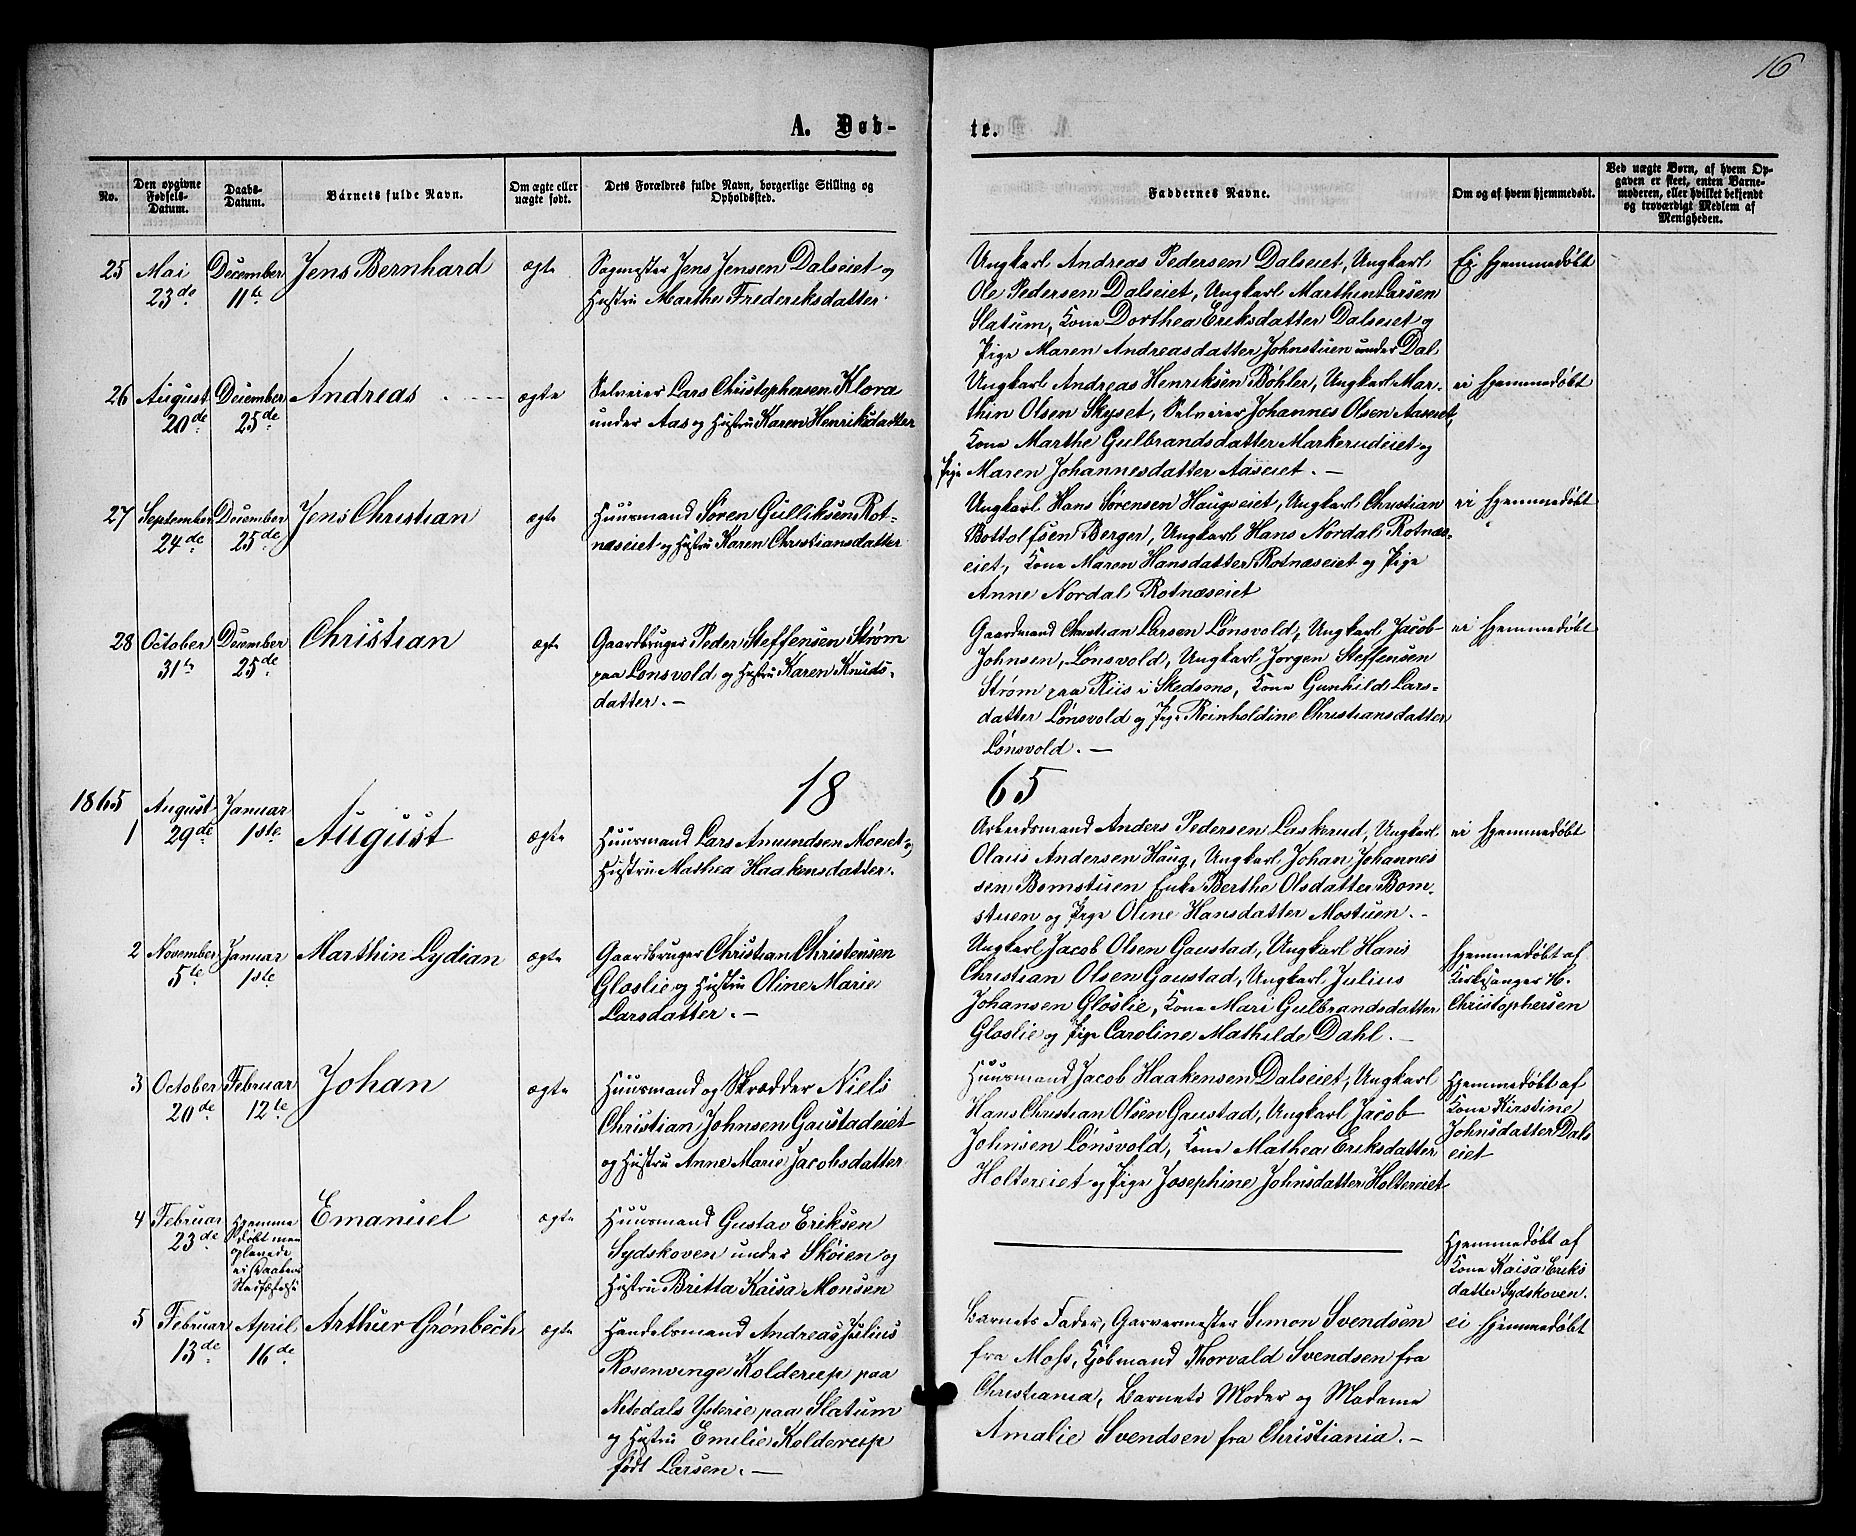 16
A. Døb-
te.
No.
Den opgivne Fødsels-Datum.
Daabs-Datum.
Barnets fulde Navn.
Om ægte eller uægte født.
Dets Forældres fulde Navn, borgerlige Stilling og Opholdssted.
Faddernes Navne.
Om og af hvem hjemmedøbt.
Ved uægte Børn, af hvem Opgaven er skeet, enten Barnemoderen, eller hvilket bekjendt og troværdigt Medlem af Menigheden.
25
Mai
23de
December
11te
Jens Bernhard
ægte
Sagmester Jens Jensen Dalseiet og
Hustru Marthe Frederiksdatter.
Ungkarl Andreas Pedersen Dalseiet, Ungkarl
Ole Pedersen Dalseiet, Ungkarl Marthin Larsen
Slatum, Kone Dorthea Eriksdatter Dalseiet og
Pige Maren Andreasdatter Johnstuen under Dal
Ei hjemmedøbt
26
August
20de
December
25de
Andreas
ægte
Selveier Lars Christophersen Klora
under Aas og Hustru Karen Henriksdatter
Ungkarl Andreas Henriksen Bøhler, Ungkarl Mar-
thin Olsen Skyset, Selveier Johannes Olsen Aaseiet,
Kone Marthe Gulbrandsdatter Markerudeiet og
Pige Maren Johannesdatter Aaseiet. —
ei hjemmedøbt
27
September
24de
December
25de
Jens Christian
ægte
Huusmand Søren Gulliksen Rot-
næseiet og Hustru Karen Christiansdatter
Ungkarl Hans Sørensen Haugseiet, Ungkarl Christian
Bottolfsen Bergen, Ungkarl Hans Nordal Rotnæs-
eiet, Kone Maren Hansdatter Rotnæseiet og Pige
Anne Nordal Rotnæseiet
ei hjemmedøbt
28
October
31te
December
25de
Christian
ægte
Gaardbruger Peder Steffensen Strøm
paa Lønsvold og Hustru Karen Knuds-
datter. —
Gaardmand Christian Larsen Lønsvold, Ungkarl Jacob
Johnsen, Lønsvold, Ungkarl Jørgen Steffensen
Strøm paa Riis i Skedsmo, Kone Gunhild Lars-
datter Lønsvold og Pige Reinholdine Christiansdatter
Lønsvold. —
ei hjemmedøbt
18
65
1865
1
August
29de
Januar
1ste
August
ægte
Huusmand Lars Amundsen Moeiet og
Hustru Mathea Haakensdatter.
Arbeidsmand Anders Pedersen Laskerud, Ungkarl
Olaus Andersen Haug, Ungkarl Johan Johannes
sen Bomstuen Enke Berthe Olsdatter Bom-
stuen og Pige Oline Hansdatter Mostuen. -
ei hjemmedøbt
2
November
5te
Januar
1ste
Marthin Lydian
ægte
Gaardbruger Christian Christensen
Gløslie og Hustru Oline Marie
Larsdatter. —
Ungkarl Jacob Olsen Gaustad, Ungkarl Hans
Christian Olsen Gaustad, Ungkarl Julius
Johansen Gløslie, Kone Mari Gulbrandsdatter
Gløslie og Pige Caroline Mathilde Dahl. —
Hjemmedøbt af
Kirkesanger H.
Christophersen
3
October
20de
Februar
12te
Johan
ægte
Huusmand og Skrædder Niels
Christian Johnsen Gaustadeiet
og Hustru Anne Marie Jacobsdatter
Huusmand Jacob Haakensen Dalseiet, Ungkarl
Hans Christian Olsen Gaustad, Ungkarl Jacob
Johnsen Lønsvold, Kone Mathea Eriksdatter
Holtereiet og Pige Josephine Johnsdatter Holtereiet
Hjemmedøbt af
Kone Kirstine
Johnsdatter Dals
eiet
4
Februar
23de
Hjemme
døbt men
oplevede
ei Daabens
Stadfæstelse
Emanuel
ægte
Huusmand Gustav Eriksen
Sydskoven under Skøien og
Hustru Britta Kaisa Monsen
Hjemmedøbt af
Kone Kaisa Eriks
datter Sydskoven.
5
Februar
13de
April
16de
Arthur Grønbech
ægte
Handelsmand Andreas Julius
Rosenvinge Kolderup paa
Nitedals Ysterie paa Slatum
og Hustru Emelie Kolderup
født Larsen. —
Barnets Fader, Garvermester Simon Svendsen
fra Moss, Kjøbmand Thorvald Svendsen fra
Christiania, Barnets Moder og Madame
Amalie Svendsen fra Christiania. —
ei hjemmedøbt